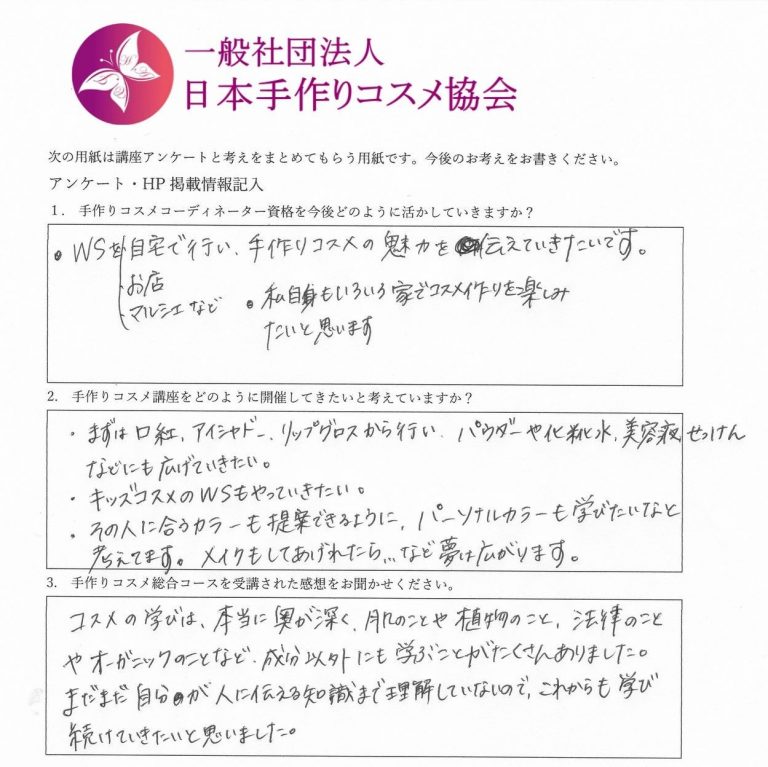 一般社団法人
日本手作りコスメ協会
次の用紙は講座アンケートと考えをまとめてもらう用紙です。今後のお考えをお書きください。
アンケート・HP 掲載情報記入
1. 手作りコスメコーディネーター資格を今後どのように活かしていきますか？
・WSを自宅で行い、手作りコスメの魅力を伝えていきたいです。
・お店
・マルシェなど
・私自身もいろいろ家でコスメ作りを楽しみ
たいと思います
2. 手作りコスメ講座をどのように開催してきたいと考えていますか？
・まずは口紅、アイシャドー、リップグロスから行い、パウダーや化粧水、美容液、せっけん
などにも広げていきたい。
・キッズコスメのWSもやっていきたい。
・その人に合うカラーも提案できるように、パーソナルカラーも学びたいなと
考えてます。メイクもしてあげれたら…など夢は広がります。
3. 手作りコスメ総合コースを受講された感想をお聞かせください。
コスメの学びは、本当に奥が深く、肌のことや植物のこと、法律のこと
やオーガニックのことなど、成分以外にも学ぶことがたくさんありました。
まだまだ自分が人に伝える知識まで理解していないので、これからも学び
続けていきたいと思いました。